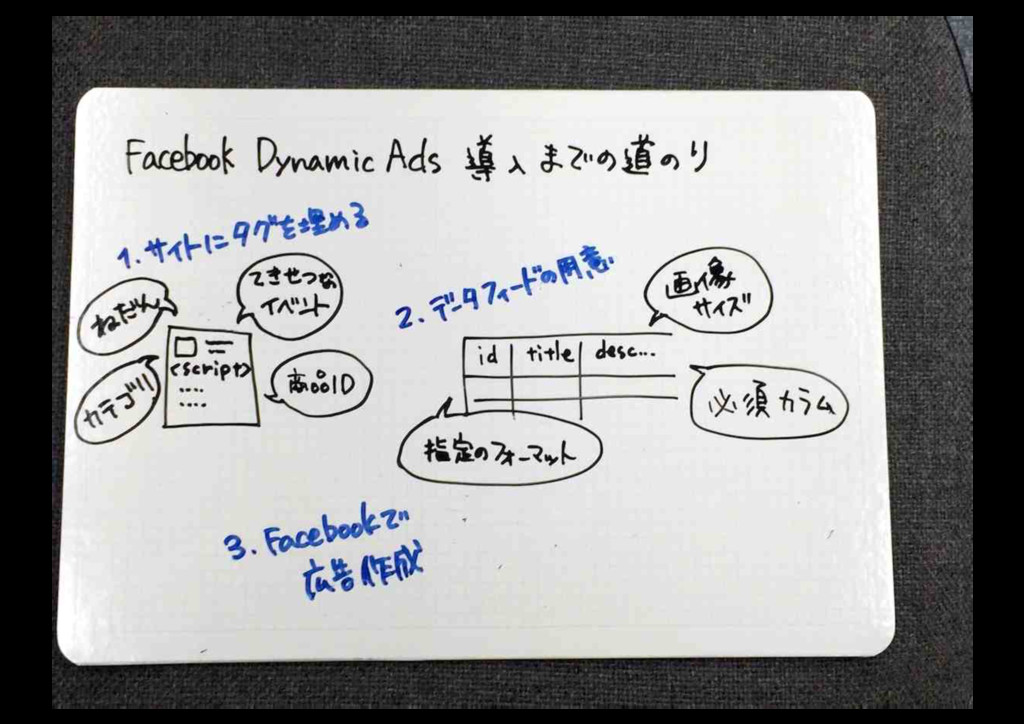 Facebook Dynamic Ads 導入までの道のり
1. サイトにタグを埋める
ねだん
てきせつな
イベント
<script>
カテゴリ
商品ID
2. データフィードの用意
画像
サイズ
id title desc...
必須カラム
指定のフォーマット
3. Facebookで
広告作成